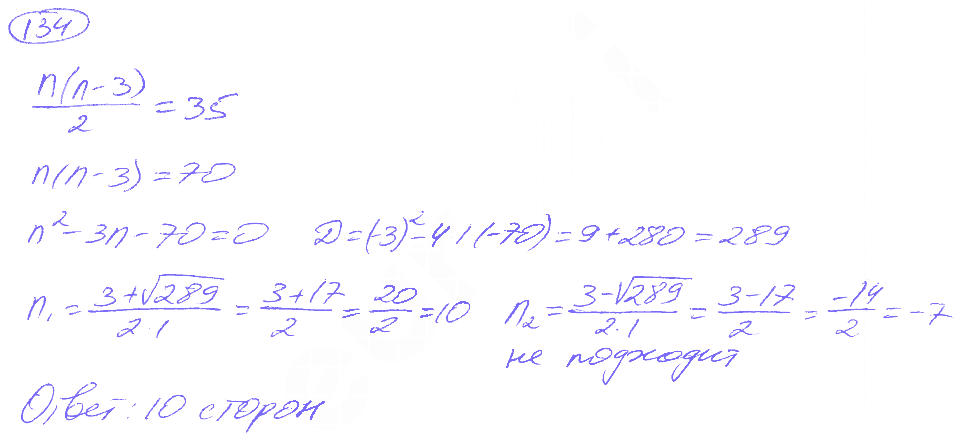 134
n(n-3)/2 = 35
n(n-3) = 70
n² - 3n - 70 = 0 D = (-3)² - 4 1 (-70) = 9 + 280 = 289
n₁ = (3+√289)/(2·1) = (3+17)/2 = 20/2 = 10 n₂ = (3-√289)/(2·1) = (3-17)/2 = -14/2 = -7
не подходит
Ответ: 10 сторон